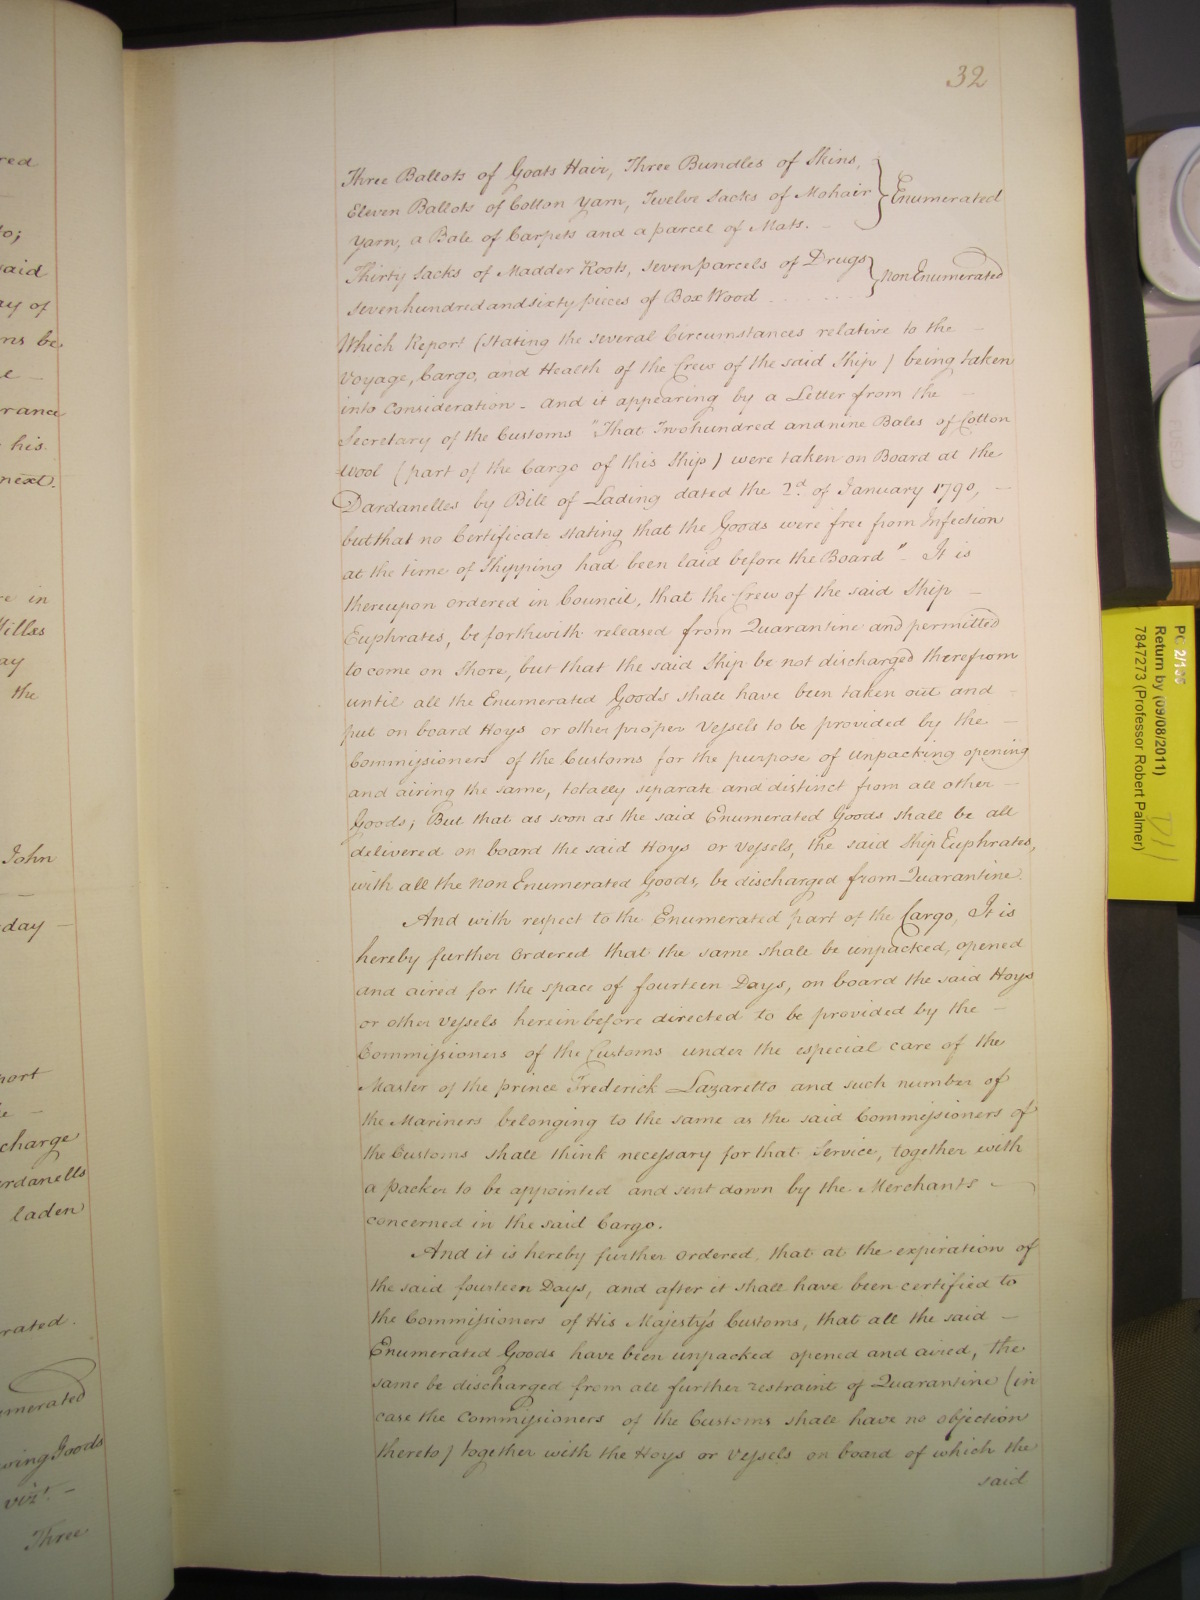 32
Three Ballots of Goats Hair, Three Bundles of Skins,
Eleven Ballots of Cotton Yarn, Twelve Sacks of Mohair } Enumerated
Yarn, a Bale of Carpets and a parcel of Mats. –
Thirty Sacks of Madder Roots, seven parcels of Drugs } Non Enumerated
seven hundred and sixty pieces of Box Wood ........
Which Report (stating the several Circumstances relative to the –
Voyage, Cargo, and Health of the Crew of the said Ship) being taken
into Consideration – and it appearing by a Letter from the –
Secretary of the Customs "That Two hundred and nine Bales of Cotton
Wool (part of the Cargo of this Ship) were taken on Board at the
Dardanelles by Bill of Lading dated the 2d. of January 1790, –
but that no Certificate stating that the Goods were free from Infection
at the time of Shipping had been laid before the Board" – It is
thereupon ordered in Council, that the Crew of the said Ship –
Euphrates, be forthwith released from Quarantine and permitted
to come on Shore, but that the said Ship be not discharged therefrom
until all the Enumerated Goods shall have been taken out and –
put on board Hoys or other proper Vessels to be provided by the –
Commissioners of the Customs for the purpose of unpacking opening
and airing the same, totally separate and distinct from all other –
Goods; But that as soon as the said Enumerated Goods shall be all
delivered on board the said Hoys or Vessels, the said Ship Euphrates,
with all the Non Enumerated Goods, be discharged from Quarantine.
And with respect to the Enumerated part of the Cargo, It is
hereby further Ordered that the same shall be unpacked, opened
and aired for the space of fourteen Days, on board the said Hoys
or other Vessels herein before directed to be provided by the –
Commissioners of the Customs under the especial care of the
Master of the prince Frederick Lazaretto and such number of
the Mariners belonging to the same as the said Commissioners of
the Customs shall think necessary for that Service, together with
a packer to be appointed and sent down by the Merchants –
concerned in the said Cargo.
And it is hereby further ordered, that at the expiration of
the said fourteen Days, and after it shall have been certified to
the Commissioners of His Majesty's Customs, that all the said –
Enumerated Goods have been unpacked opened and aired, the
same be discharged from all further restraint of Quarantine (in
case the Commissioners of the Customs shall have no objection
thereto) together with the Hoys or Vessels on board of which the
said
red
to;
said
ay of
ns be
rance
his
next.
re in
ay
the
John
day –
port
charge
ardanells
laden
rated.
merated
wing Goods
vizt. –
Three
Return by (09/08/2011)
7847273 (Professor Robert Palmer)